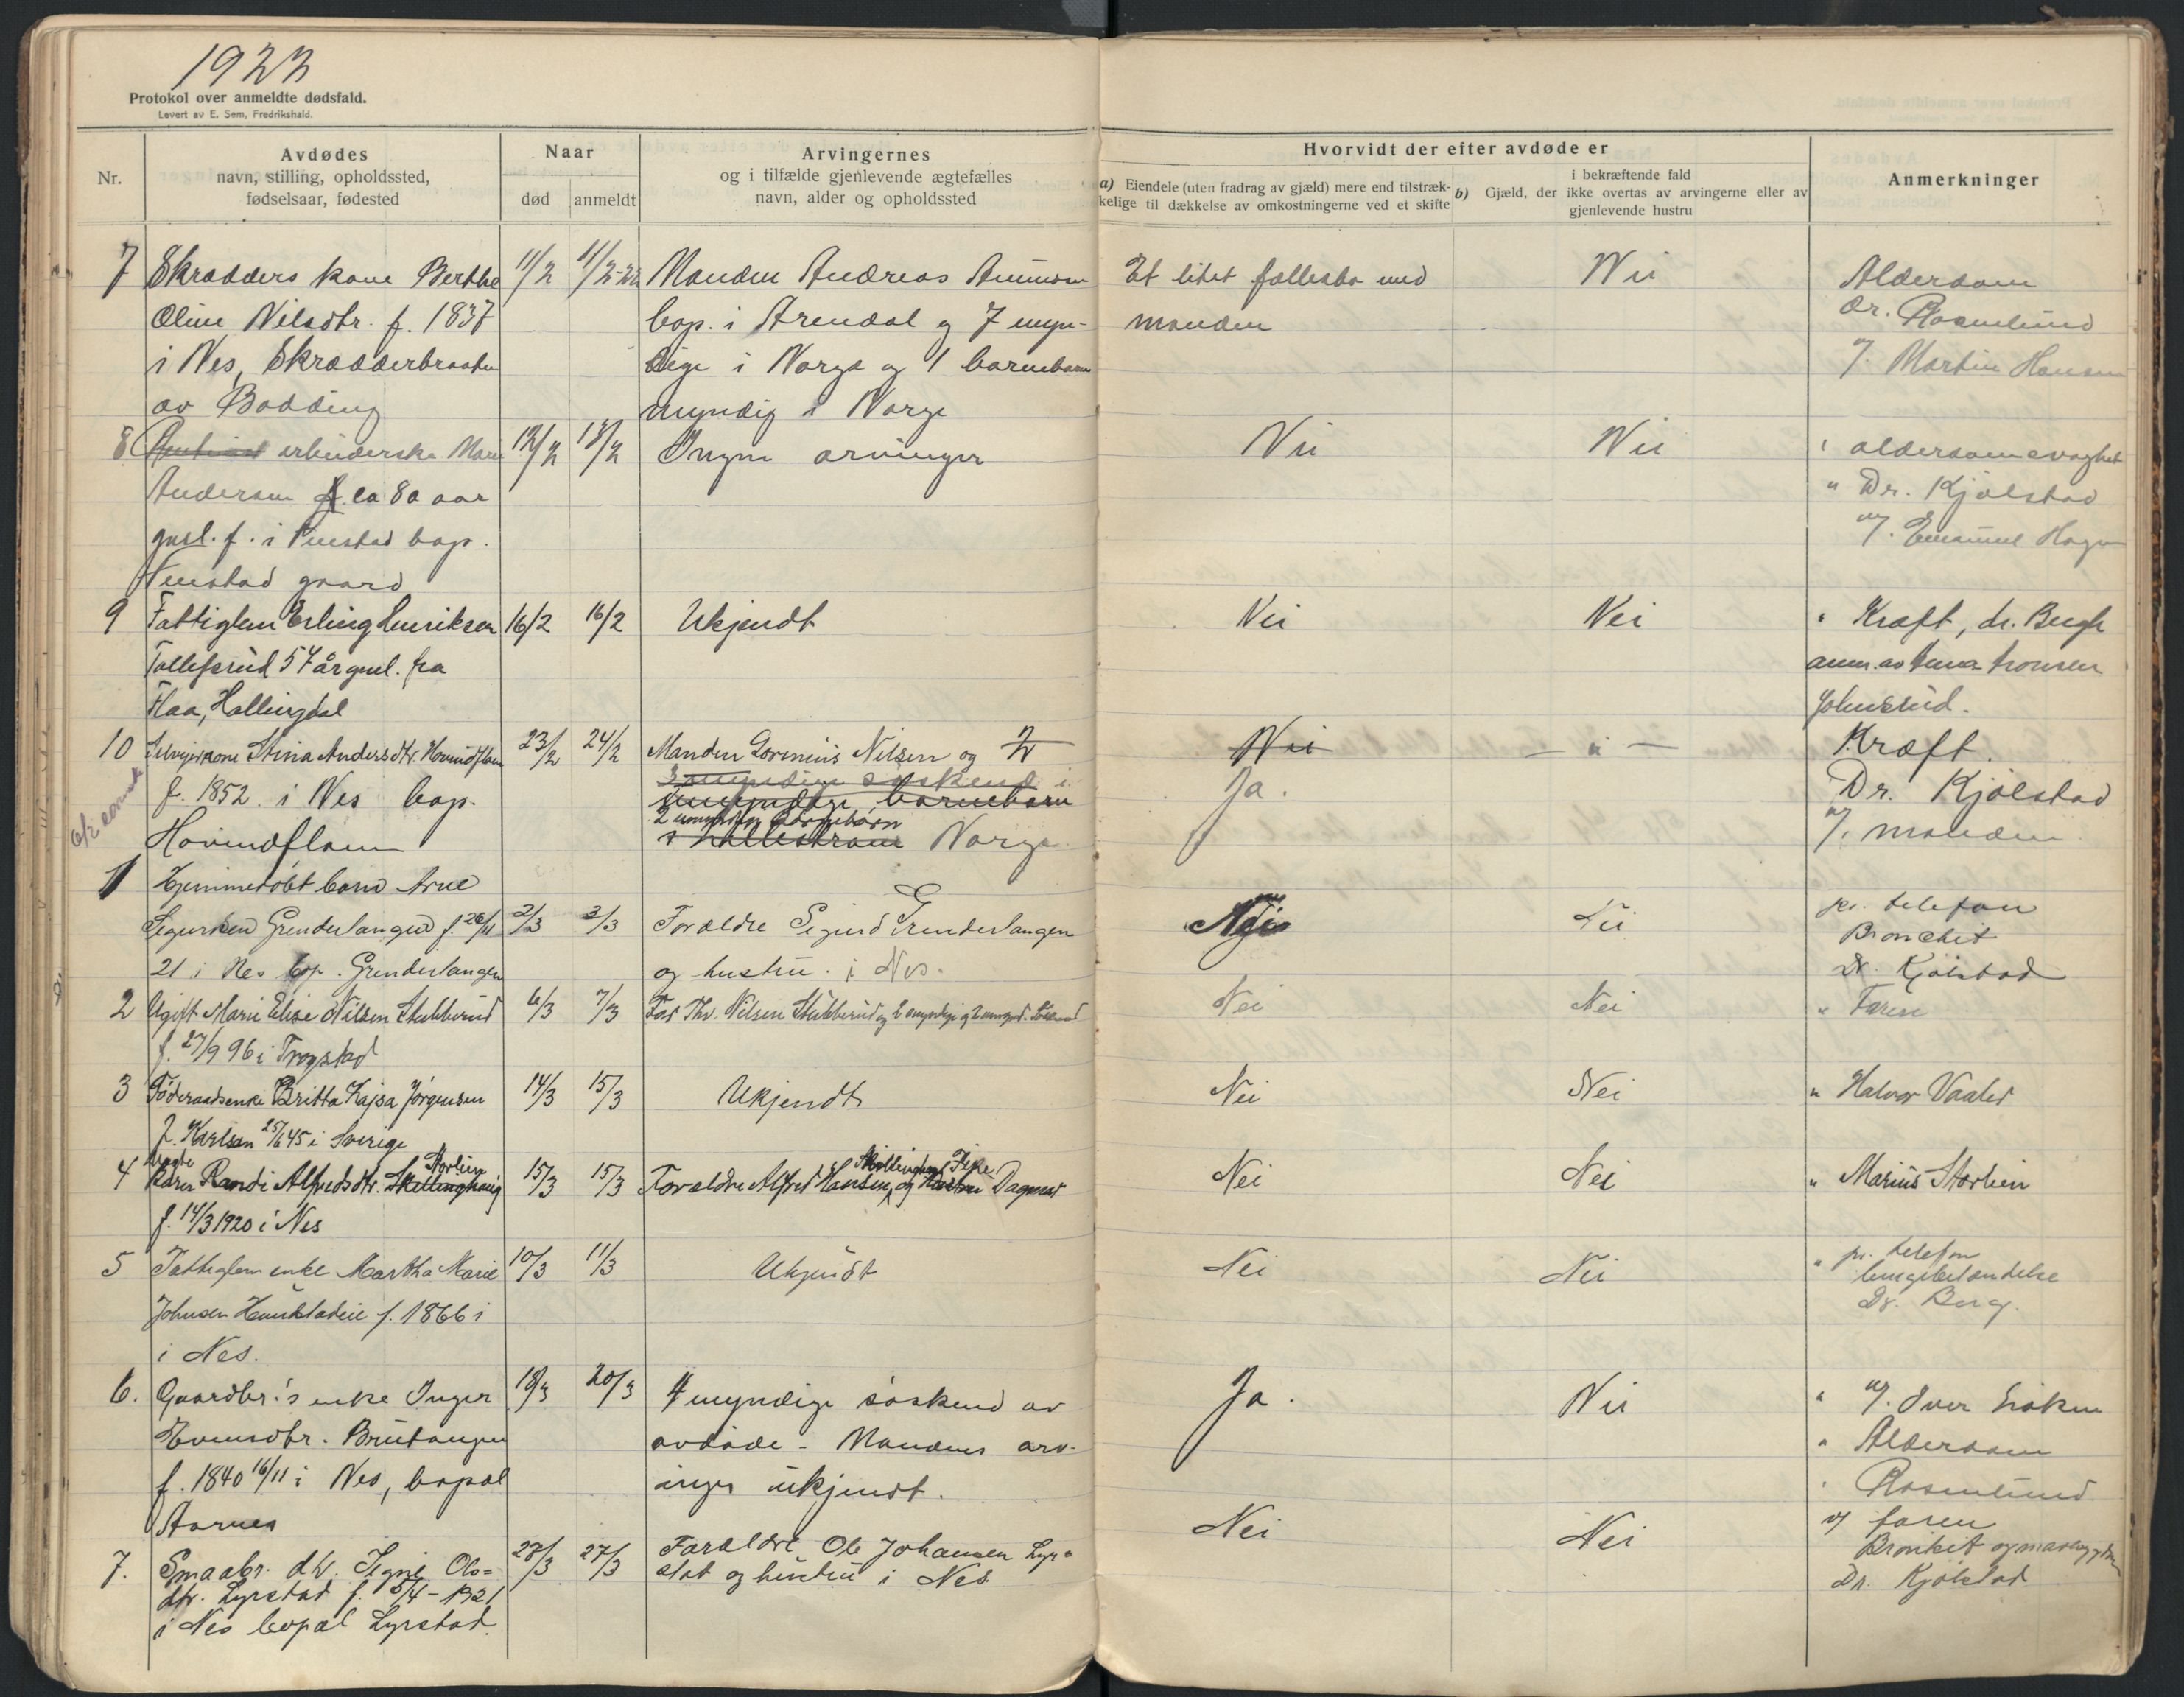 1922
Protokol over anmeldte dødsfald.
Levert av E. Sem, Fredrikshald.
Nr.
Avdødes
navn, stilling, opholdssted,
fødselsaar, fødested
Naar
død
anmeldt
Arvingernes
og i tilfælde gjenlevende ægtefælles
navn, alder og opholdssted
Hvorvidt der efter avdøde er
a) Eiendele (uten fradrag av gjæld) mere end tilstræk-
kelige til dækkelse av omkostningerne ved et skifte
i bekræftende fald
b) Gjæld, der ikke overtas av arvingerne eller av
gjenlevende hustru
Anmerkninger
7 Skrædders kone Berthe 11/2 11/2-22 Manden Andreas Et litet fællesbo med Nei Alderdom
Oline Nilsdtr. f. 1837 bop. i Arendal og 7 myn- manden Dr. Rosenlund
i Nes, Skrædderbraaten dige i Norge og 1 barnebarn v/ Martin Hansen
av Bodding myndig i Norge
8 arbeiderske Marie 12/2 13/2 Ingen arvinger Nei Nei alderdomsvaghet
Andersen ca 80 aar " Dr. Kjølstad
gml. f. i bop. v/ Emanuel Hagen
gaard
9 Fattiglem Erling Henriksen 16/2 16/2 Ukjendt Nei Nei " Kræft, dr. Bergh
Tollefsrud 57 år gml. fra anm. av
Flaa, Hallingdal Johnsrud.
10 Selveierkone Stina Andersdtr. Hovindflaen 23/2 24/2 Manden Lorentius Nilsen og 2 Nei — " — Kræft.
f. 1852 i Nes bop. 3 myndige søskend i Ja. Dr. Kjølstad
umyndige barnebarn
Hovindflaen 2 umyndige barnebarn v/ manden
Norge
1 Hjemmedøbt barn Arne
Sigurdsen Grenderlangen f. 26/11 2/3 3/3 Forældre Sigurd Grenderlangen Nei Nei pr. telefon
Bronchit
21 i Nes bop. Grenderlangen og hustru i Nes. Dr. Kjølstad
2 Ugift Marie Elise Nilsen Stubberud 6/3 7/3 Far Thv. Nilsen Stubberud og 2 myndige og 2 umynd. søskend Nei Nei " Faren
f. 27/9 96 i Trøgstad
3 Føderaadsenke Britta Kajsa Jørgensen 14/3 15/3 Ukjendt Nei Nei " Halvor Vaaler
f. Karlsen 25/6 45 i Sverige
4 Karen Randi Alfredsdtr. Skellinghaug Storlien 15/3 15/3 Forældre Alfred Hansen Skellinghaug og Hustru Dagmar Nei Nei " Marius Storlien
f. 14/3 1920 i Nes
5 Fattiglem enke Martha Marie 10/3 11/3 Ukjendt Nei Nei " pr. telefon
lungebetændelse
Johnsen Hunstadeie f. 1866 i Dr. Berg.
i Nes.
6. Gaardbr.'s enke Inger 18/3 20/3 4 myndige søskend av Ja. Nei " v/ Iver
Evensdtr. Brutangen avdøde - Mandens arv- " Alderdom
f. 1840 16/11 i Nes, bopæl inger ukjendt. " Rosenlund
Aarnes
7. Smaabr. dtr. Signe Ols- 23/3 27/3 Forældre Ole Johansen Lyr- Nei Nei v/ faren
Bronkit og
dtr. Lyrstad f. 5/4 - 1921 stad og hustru i Nes Dr. Kjølstad
i Nes bopæl Lyrstad.